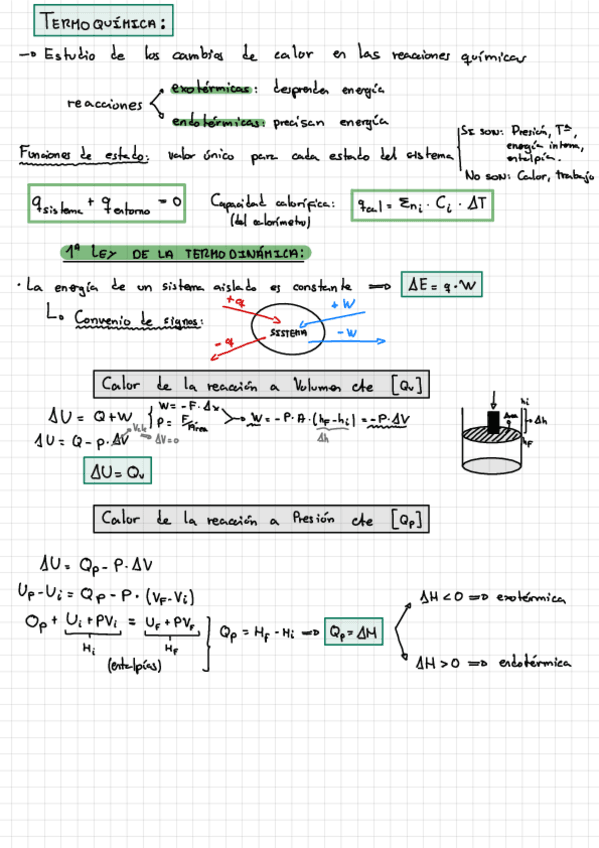 TERMOQUÍMICA:
→ Estudio de los cambios de calor en las reacciones químicas
reacciones
exotérmicas: desprenden energía
endotérmicas: precisan energía
Funciones de estado: valor único para cada estado del sistema
SI SON: Presión, Tª,
energía interna,
entalpía.
NO SON: Calor, trabajo
q sistema + q entorno = 0
Capacidad calorífica:
(del calorímetro)
q cal = Σni · Ci · ΔT
1ª LEY DE LA TERMODINÁMICA:
· La energía de un sistema aislado es constante ⇒ ΔE = q · W
Convenio de signos:
+q
+W
SISTEMA
-q
-W
Calor de la reacción a Volumen cte [Qv]
ΔU = Q + W
W = -F · Δx
P = F/Área
→ W = -P · A · (hF - hi) = -P · ΔV
Δh
ΔU = Q - P · ΔV
V cte → ΔV = 0
ΔU = Qv
hi
Área
Δh
hF
Calor de la reacción a Presión cte [Qp]
ΔU = Qp - P · ΔV
UF - Ui = Qp - P · (VF - Vi)
Qp + Ui + PVi = UF + PVF
Hi
HF
(entalpías)
Qp = HF - Hi ⇒ Qp = ΔH
ΔH < 0 ⇒ exotérmica
ΔH > 0 ⇒ endotérmica